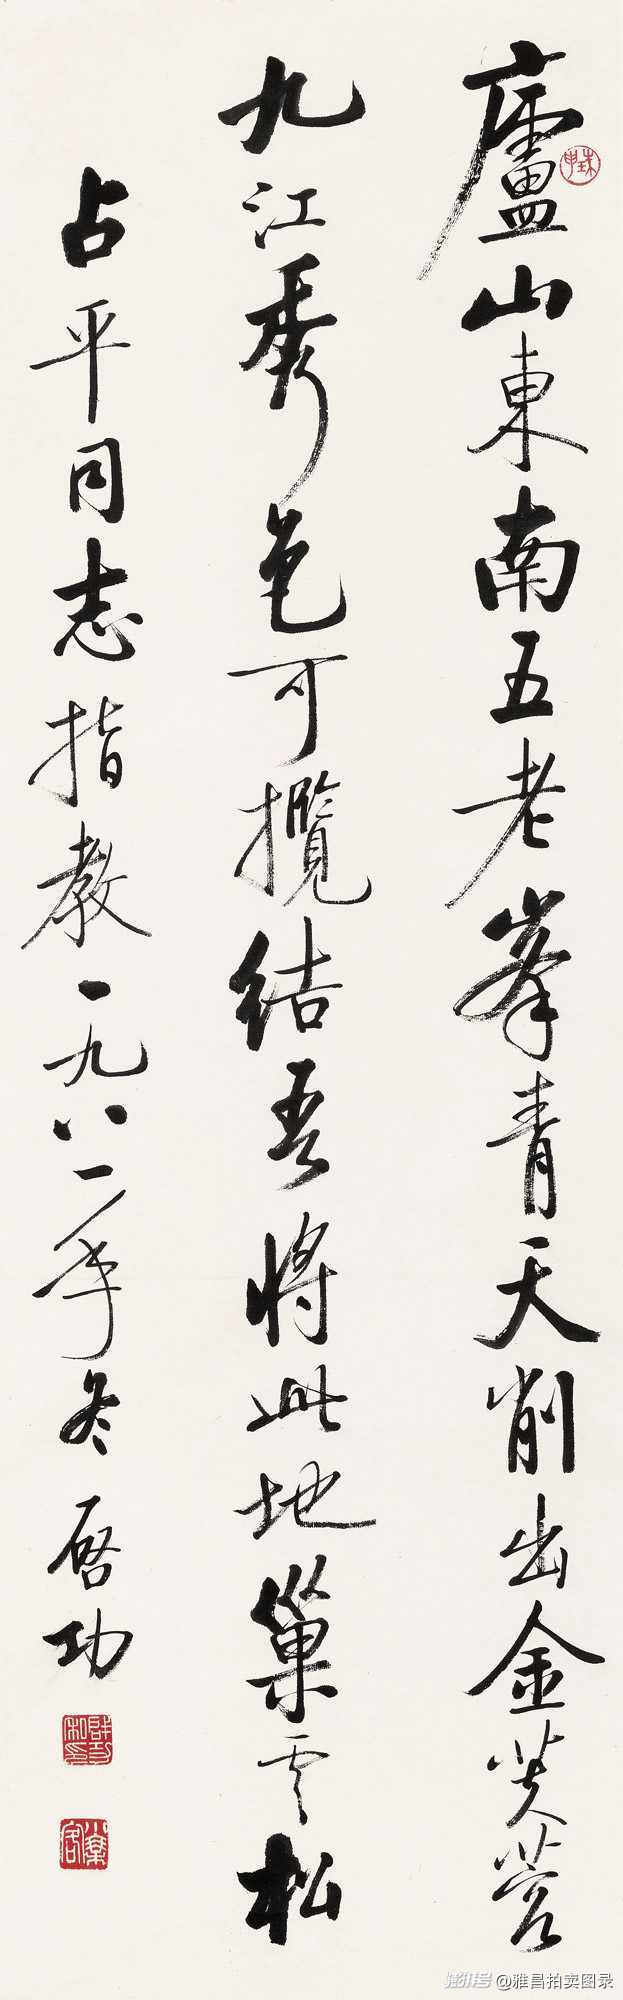 廬山東南五老峯青天削出金芙蓉
九江秀色可攬結吾將此地巢雲松
占平同志指教一九八一年冬啓功
澎湃号@雅昌拍卖图录